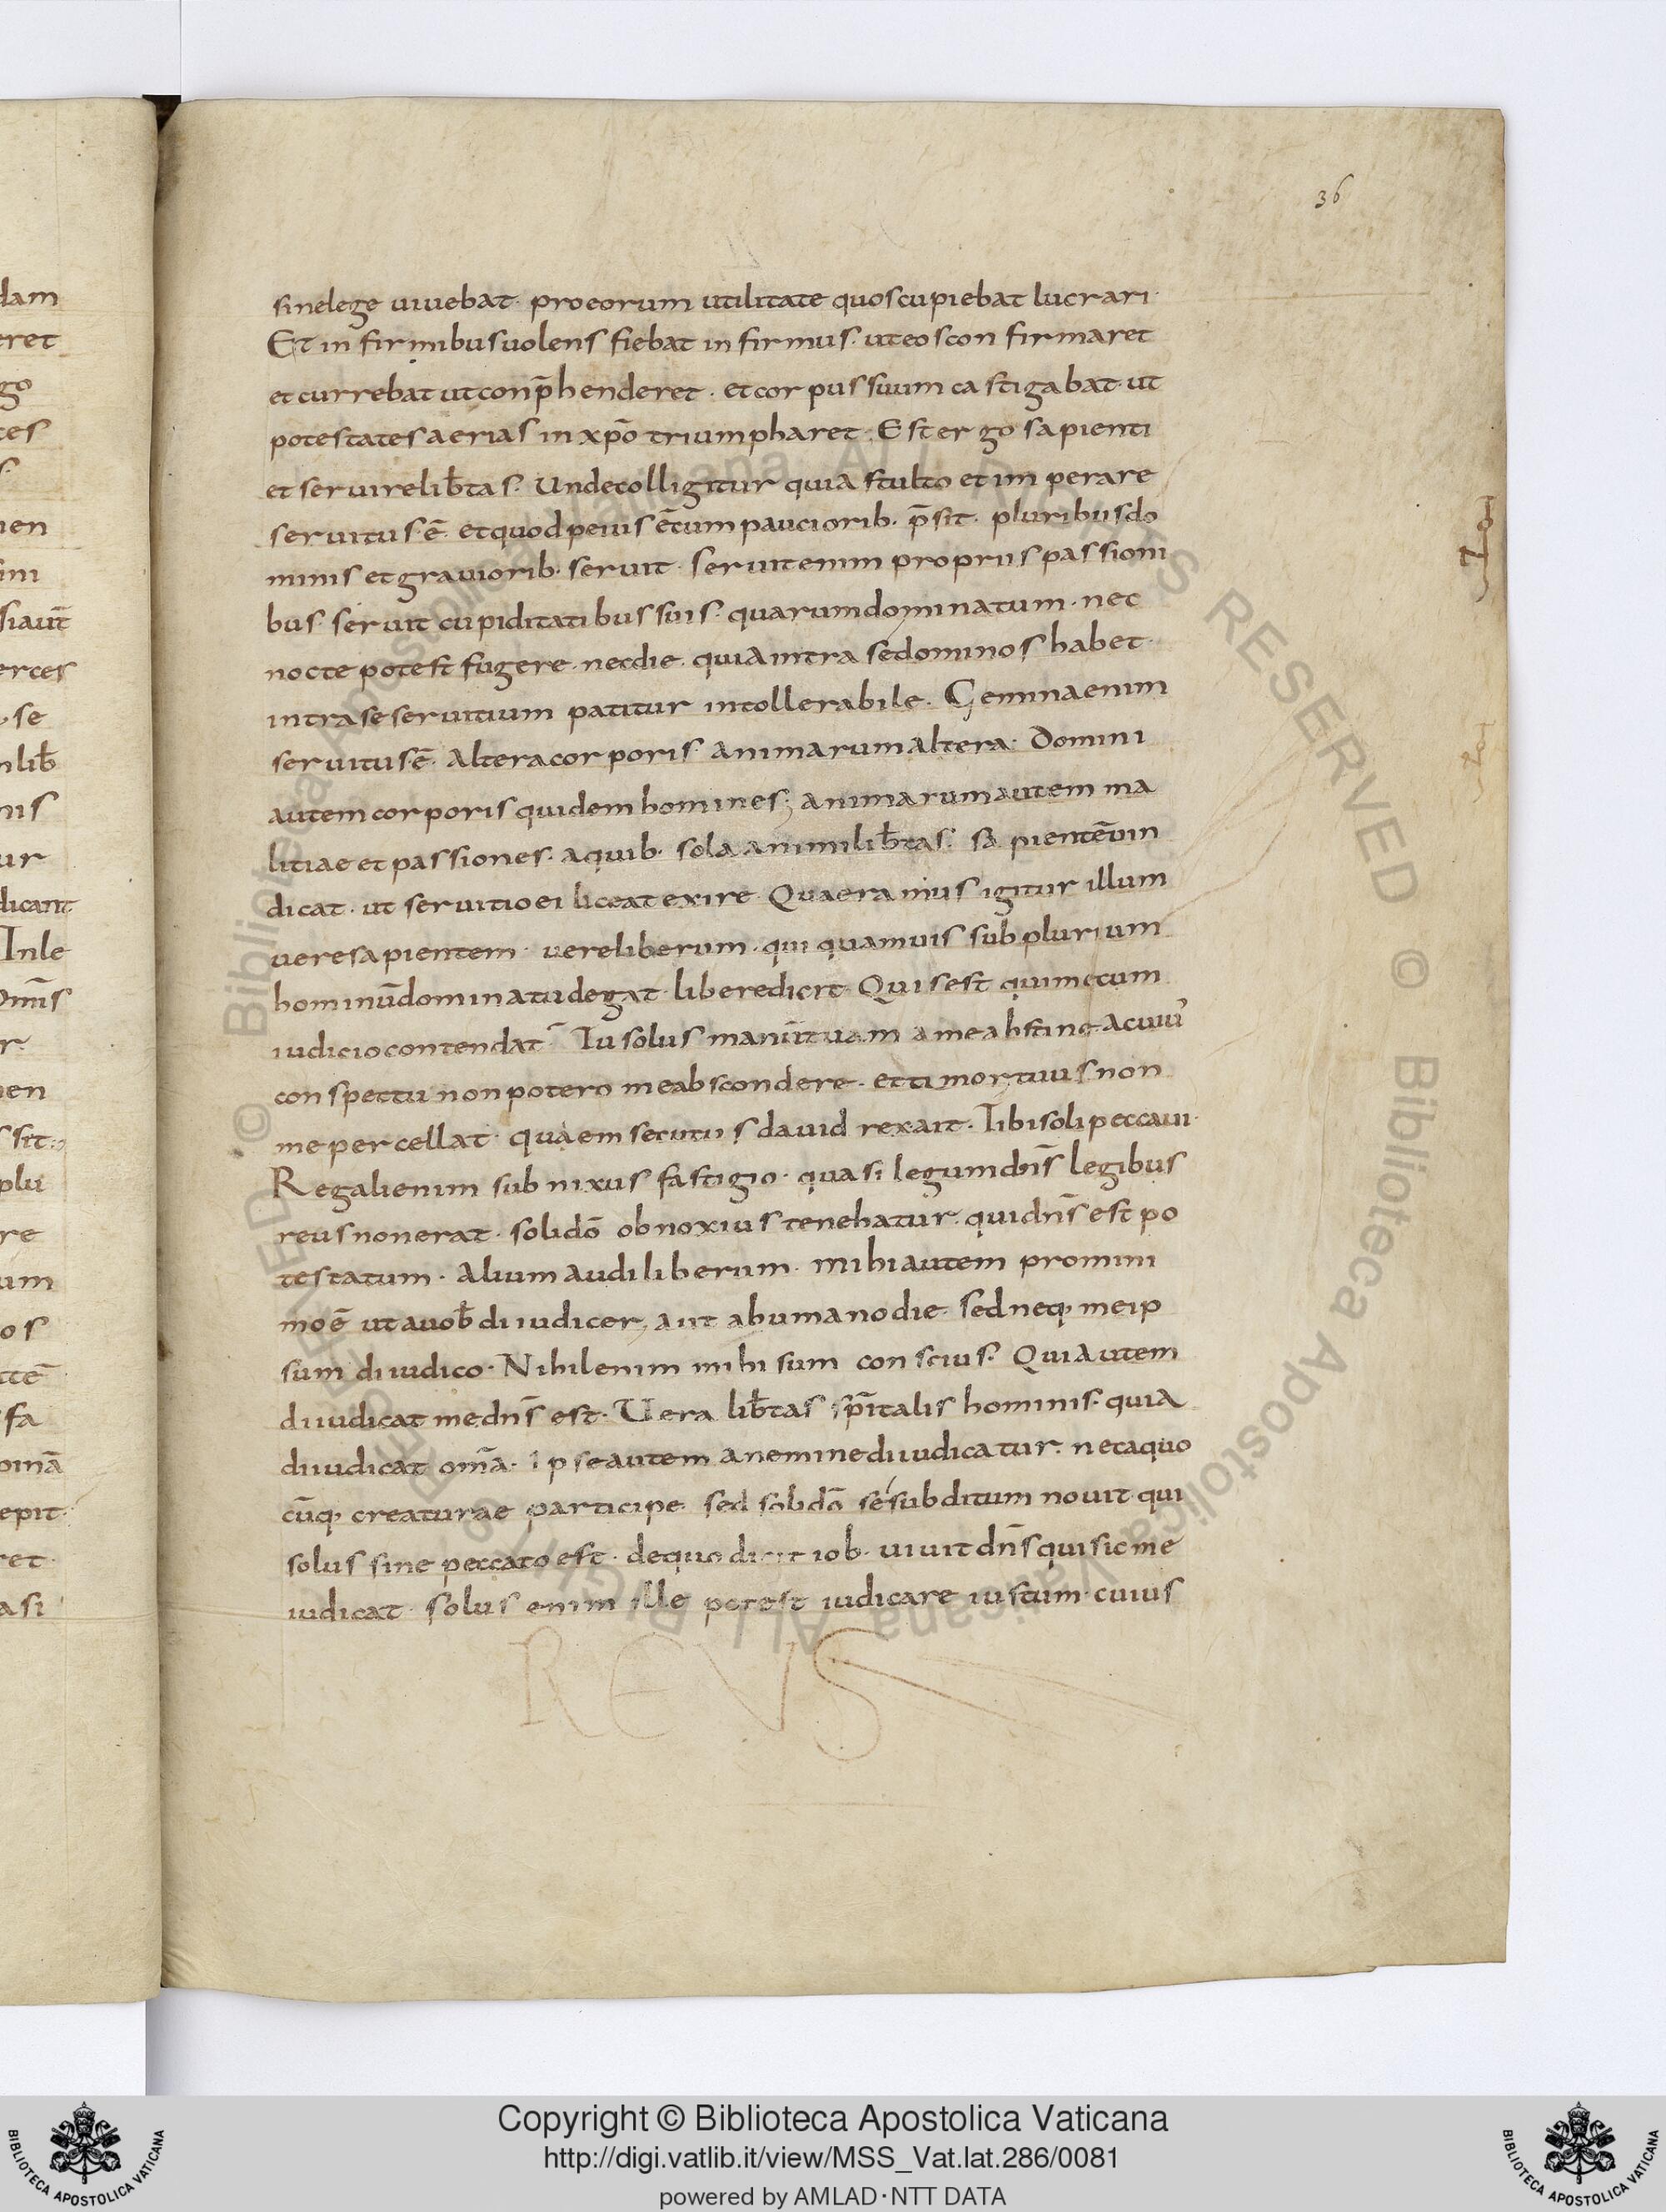 36
sinelege uiuebat· proeorum utilitate quoscupiebat lucrari·
Et in firmibusuolens fiebat in firmus· uteoscon firmaret
et currebat utconp̄henderet · etcor pus suum ca stigabat· ut
potestatesaerias in xp̄o triumpharet· Est er go sapienti
et seruirelib̄tas· Undecolligitur quia stulto et im perare
seruitus·ē· etquod peius ē cum pauciorib· p̄sit· pluribusdo
minis et grauiorib· seruit· seruitenim propriis passioni
bus· seruit cupiditatibus suis· quarumdominatum· nec
nocte potest fugere· necdie· quiaintra sedominos habet·
intraseseruitium patitur intollerabile· Geminaenim
seruitus·ē· Alteracorporis animarumaltera· Domini
autemcorporis quidem homines; animarumautem ma
litiae et passiones· aquib· sola animilib̄tas· sa pientēuin
dicat· ut seruitio ei liceat exire· Quaera mus igitur illum
ueresapientem· uereliberum· qui quamuis sub plurium
hominūdominatudegat· liberedicit· Quisest quimecum
iudiciocontendat· Tu solus manūtuam ameabstine· Acuiuʾ
conspectu nonpotero meabscondere· etti mortuusnon
mepercellat· quaem secutus dauid rexait· Tibisolipeccaui·
Regalienim sub nixus fastigio· quasi legumdn̄s legibus
reusnonerat· solidō obnoxius tenebatur· quidn̄s est po
testatum· Alium audiliberum· mihiautem promini
moē utauob̄ diiudicer, aut abumanodie· sedneq; meip
sum diiudico· Nihilenim mihi sum conscius· Quiautem
diiudicat medn̄s est· Uera lib̄tas sp̄italis hominis· quia
diiudicat om̄a· ipseautem aneminediiudicatur· necaquo
cūq; creaturae participe· sed sobdō sesubditum nouit· qui
solus sine peccatoest· dequo dicit iob· uiuit dn̄squisicme
iudicat· solus enim ille potest iudicare iustum· cuius
REUS
dam
eret
go
ces
s·
en
siaut̄
erces
se
lib̄
nis
ur
dicant
Inle
r·
en
sit
plu
re
um
os
fa
omā
epit·
ret·
asi
© Biblioteca Apostolica Vaticana ALL RIGHTS RESERVED © Biblioteca Apostolica Vaticana ALL RIGHTS RESERVED
Copyright © Biblioteca Apostolica Vaticana
http://digi.vatlib.it/view/MSS_Vat.lat.286/0081
powered by AMLAD·NTT DATA
BIBLIOTECA APOSTOLICA VATICANA
BIBLIOTECA APOSTOLICA VATICANA